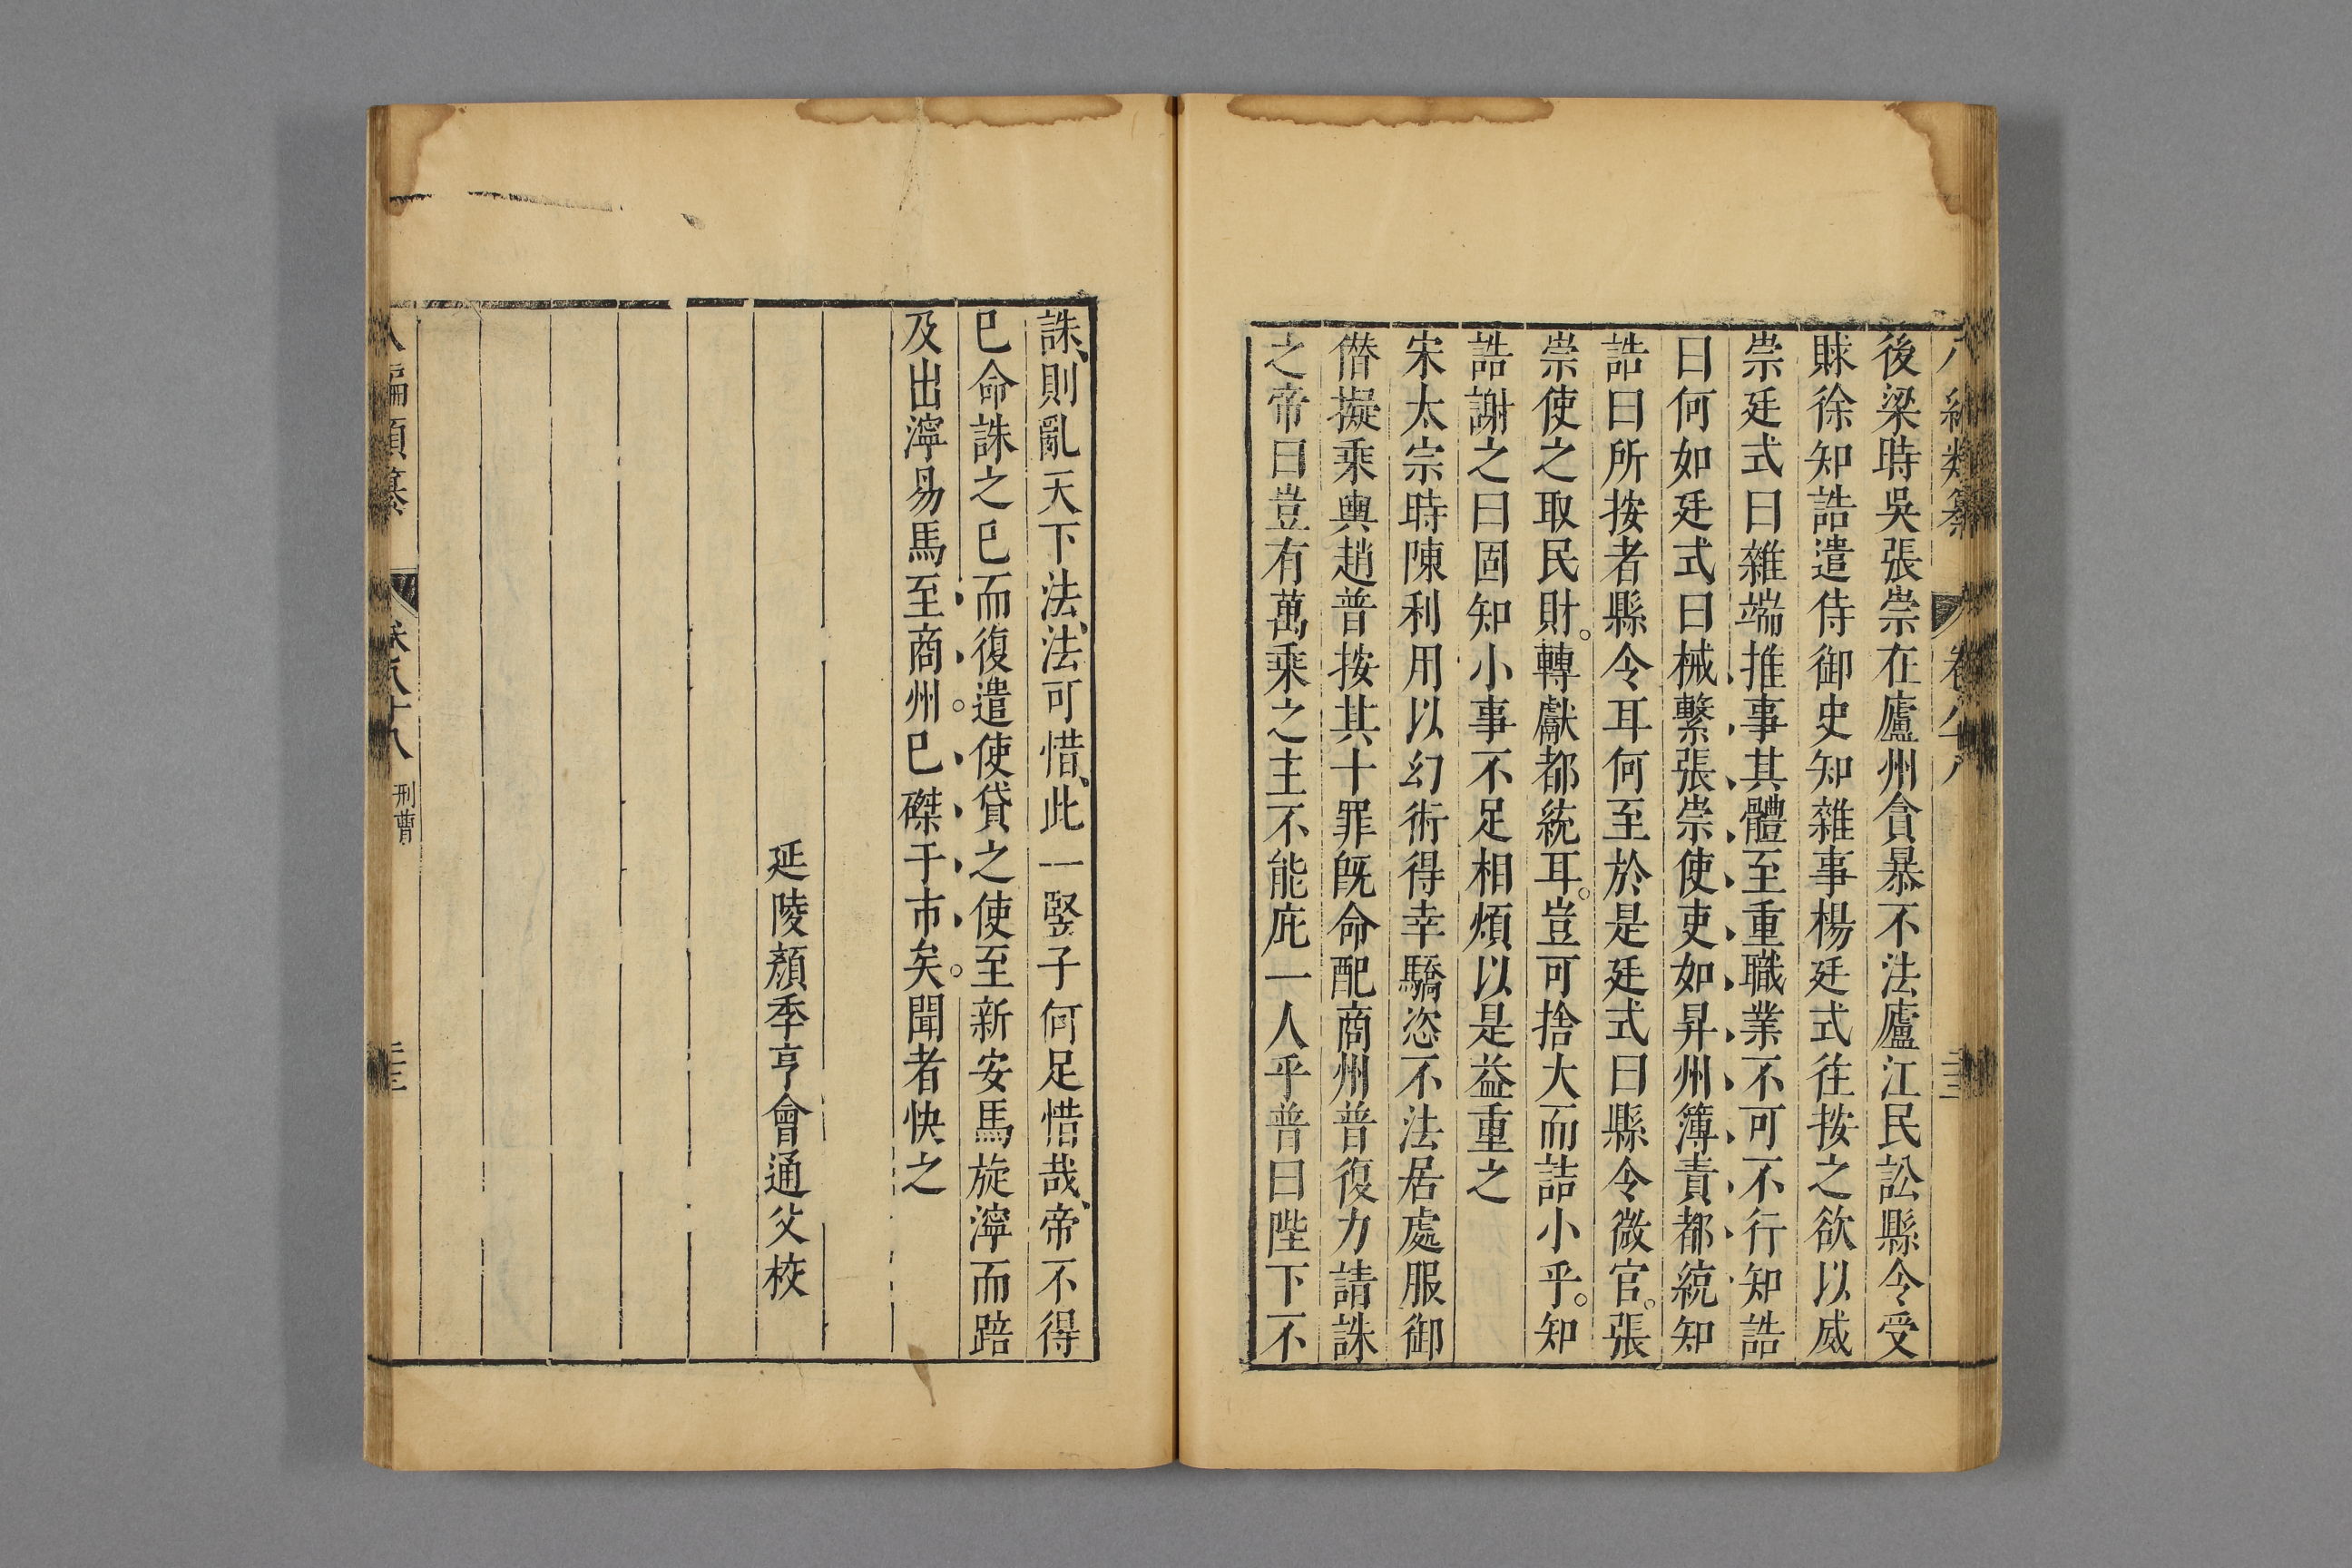 後梁時吳張崇在廬州貪暴不法廬江民訟縣令受
賕徐知誥遣侍御史知雜事楊廷式往按之欲以威
崇廷式曰雜端推事其體至重職業不可不行知誥
曰何如廷式曰械繫張崇使吏如昇州簿責都統知
誥曰所按者縣令耳何至於是廷式曰縣令微官。張
崇使之取民財。轉獻都統耳。豈可捨大而詰小乎。知
誥謝之曰固知小事不足相煩以是益重之
宋太宗時陳利用以幻術得幸驕恣不法居處服御
僣擬乘輿趙普按其十罪既命配商州普復力請誅
之帝曰豈有萬乘之主不能庇一人乎普曰陛下不
誅、則亂天下法、法可惜、此一竪子何足惜哉、帝不得
已命誅之已而復遣使貸之使至新安馬旋濘而踣
及出濘易馬至商州。已磔于市矣。聞者快之
延陵顏季亨會通父校
八編類纂 卷八十八 刑曹